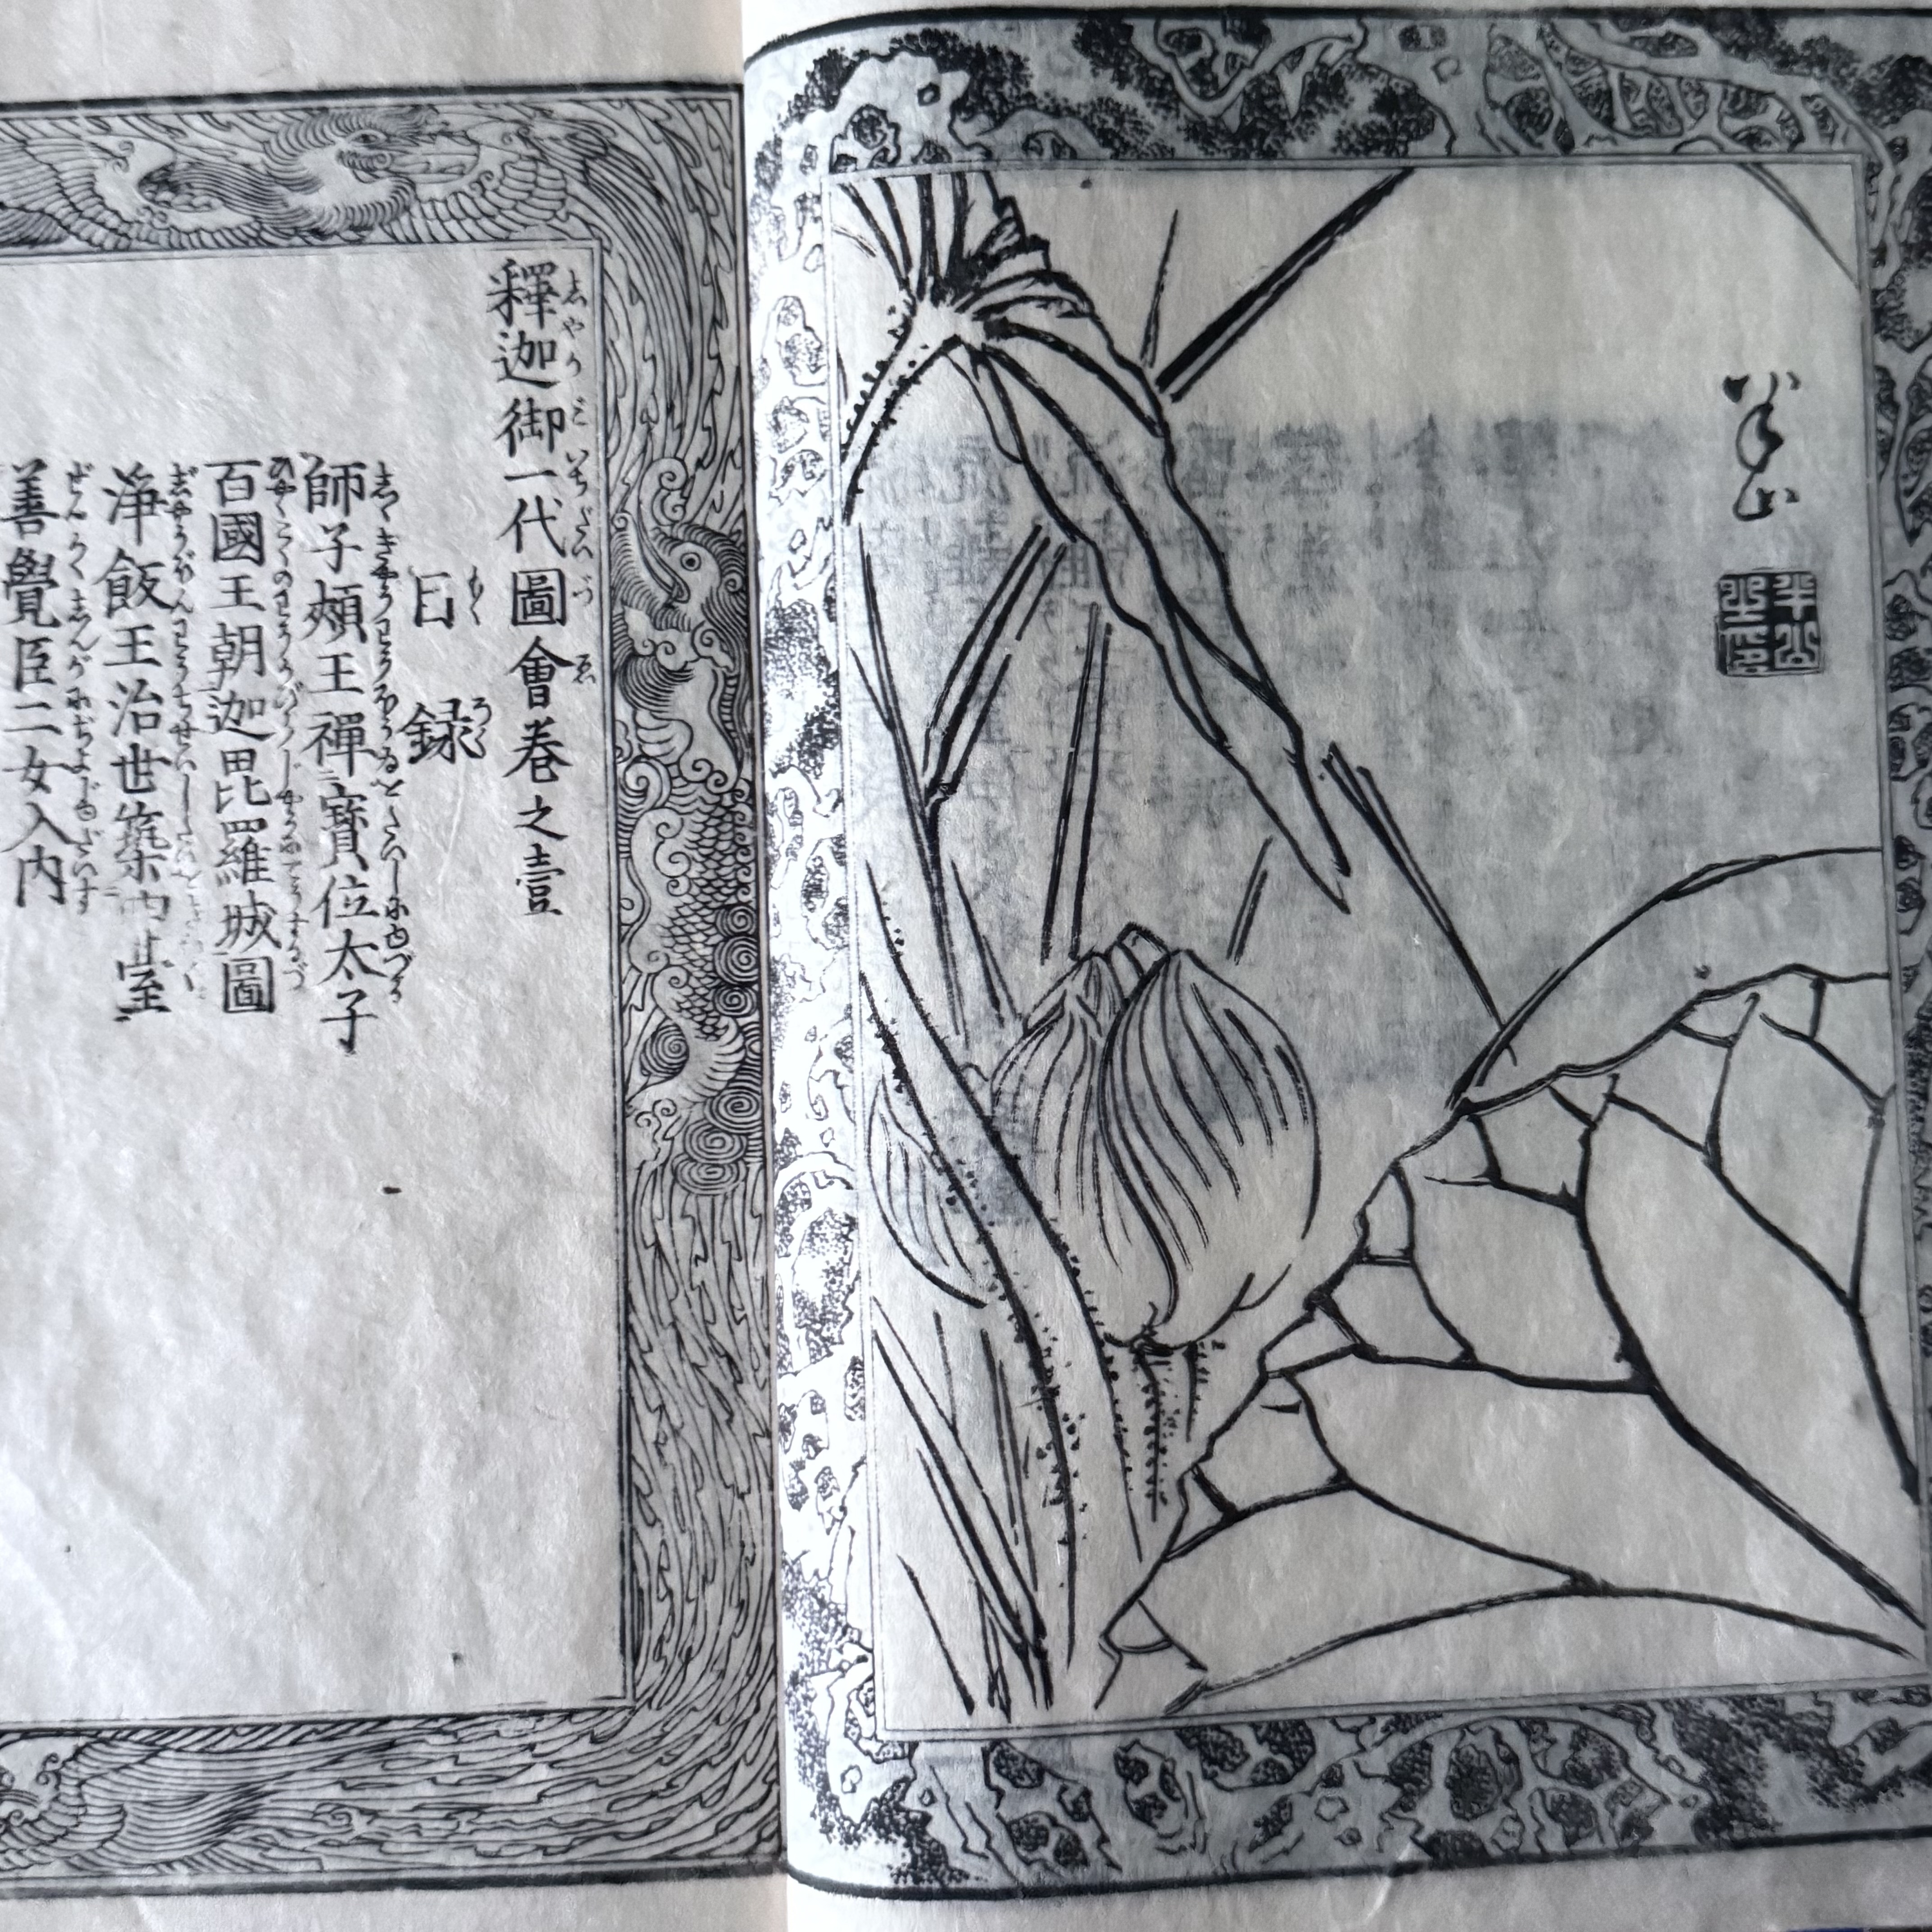 半山
半山之印
釋迦御一代圖會巻之壹
目録
師子頬王禪寳位太子
百國王朝迦毘羅城圖
淨飯王治世築
善覺臣二女入内